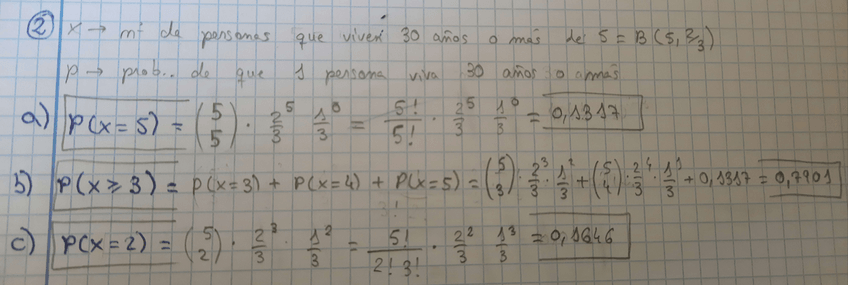 ② x → nº de personas que viven 30 años o más de 5 = B(5, 2/3)
p → prob. de que 1 persona viva 30 años o más
a) P(x=5) = (5 5) · 2/3^5 1/3^0 = 5!/5! · 2/3^5 1/3^0 = 0,1317
b) P(x≥3) = P(x=3) + P(x=4) + P(x=5) = (5 3) · 2/3^3 · 1/3^2 + (5 4) · 2/3^4 · 1/3^1 + 0,1317 = 0,7901
c) P(x=2) = (5 2) · 2/3^3 · 1/3^2 = 5!/2!3! · 2/3^2 1/3^3 = 0,1646